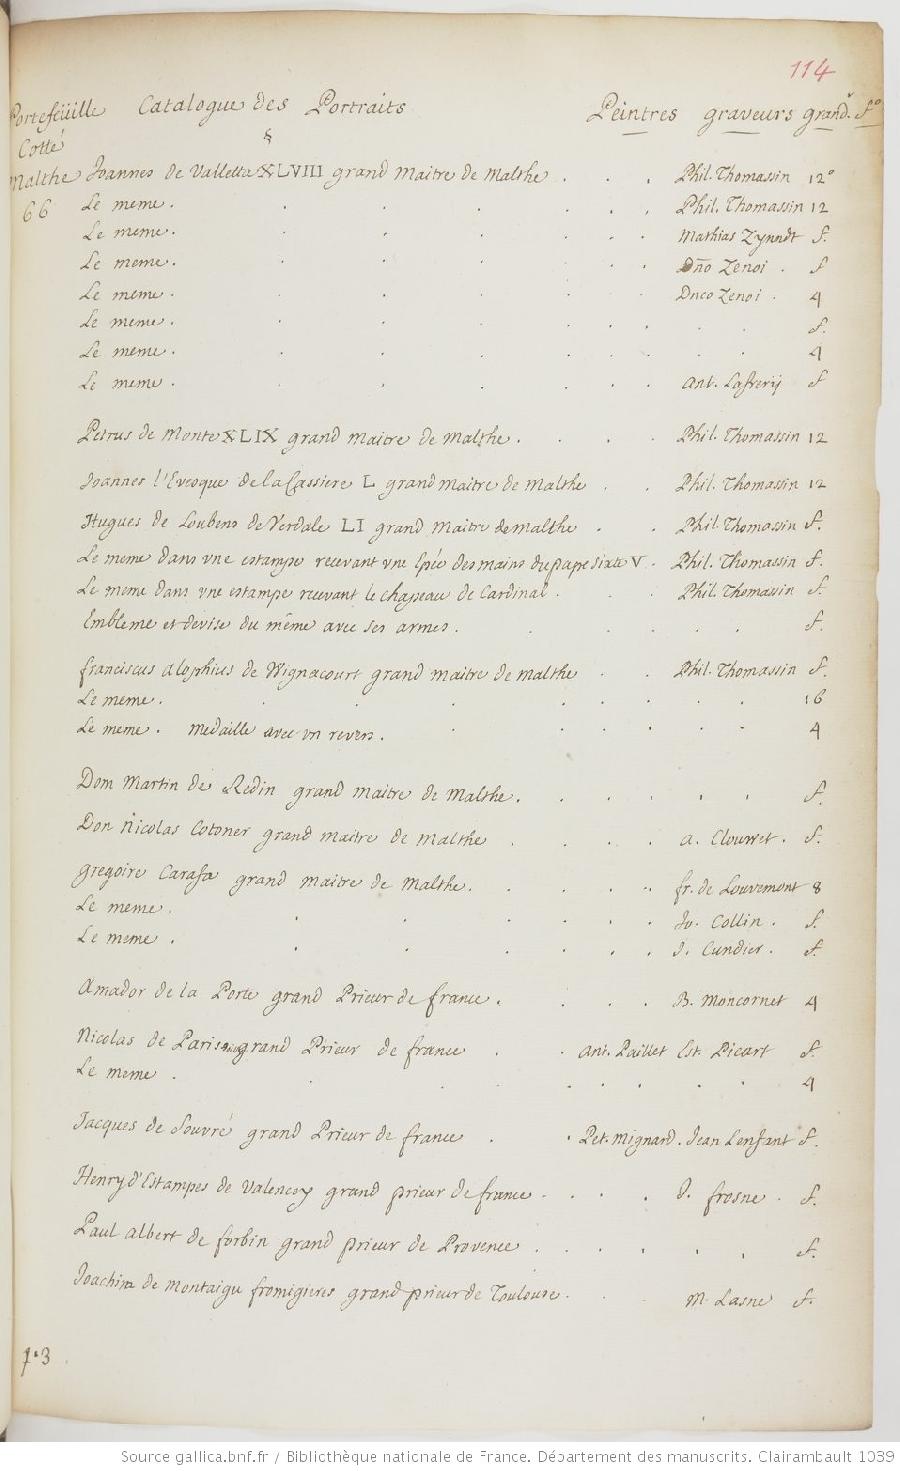 114
Portefeüille Catalogue des Portraits Peintres graveurs grandr. fo
Cotté
Malthe Joannes de Valletta XLVIII grand Maitre de Malthe . . . Phil. Thomassin 12°
66 Le meme. . . . . . . Phil. Thomassin 12
Le meme. . . . . . . Mathias Zynndt f.
Le meme. . . . . . . Dño Zenoi . f
Le meme. . . . . . . Dnco Zenoi . 4
Le meme. . . . . . . . . f.
Le meme. . . . . . . . . 4
Le meme . . . . . . . Ant. Lafrerij f
Petrus de Monte XLIX grand maitre de malthe . . . . Phil. Thomassin 12
Joannes l'Evecque de la Cassiere L grand maitre de Malthe . . Phil. Thomassin 12
Hugues de Loubens de Verdale LI grand Maitre de malthe . . Phil. Thomassin f.
Le meme dans vne estampe recevant vne Epée des mains du pape Sixte V . Phil. Thomassin f.
Le meme dans vne estampe recevant le chapeau de Cardinal . . . Phil. Thomassin f.
Embleme et devise du même avec ses armes . . . . . . f.
franciscus alophius de Wignacourt grand maitre de malthe . . Phil. Thomassin f.
Le meme. . . . . . . . . 16
Le meme . medaille avec vn revers . . . . . . . 4
Dom Martin de Redin grand maitre de Malthe . . . . . . f.
Don Nicolas Cotoner grand maitre de Malthe . . . . a. Clouwet . f.
gregoire Carafa grand maitre de Malthe . . . . fr. de Louvemont 8
Le meme. . . . . . . Jo. Collin . f.
Le meme . . . . . . . J. Cundier . f.
Amador de la Porte grand Prieur de france . . . . B. Moncornet 4
Nicolas de Paris grand Prieur de france . . Ant. Paillet Est. Picart f.
Le meme . . . . . . . . . 4
Jacques de Souvré grand Prieur de france . . Pet. Mignard . Jean Lenfant f.
Henry d'Estampes de Valencey grand prieur de france . . . . J. frosne . f.
Paul albert de forbin grand prieur de Provence . . . . . . f.
Joachim de Montaigu fromigieres grand prieur de Toulouse . . . M. Lasne f.
Source gallica.bnf.fr / Bibliothèque nationale de France. Département des manuscrits. Clairambault 1039